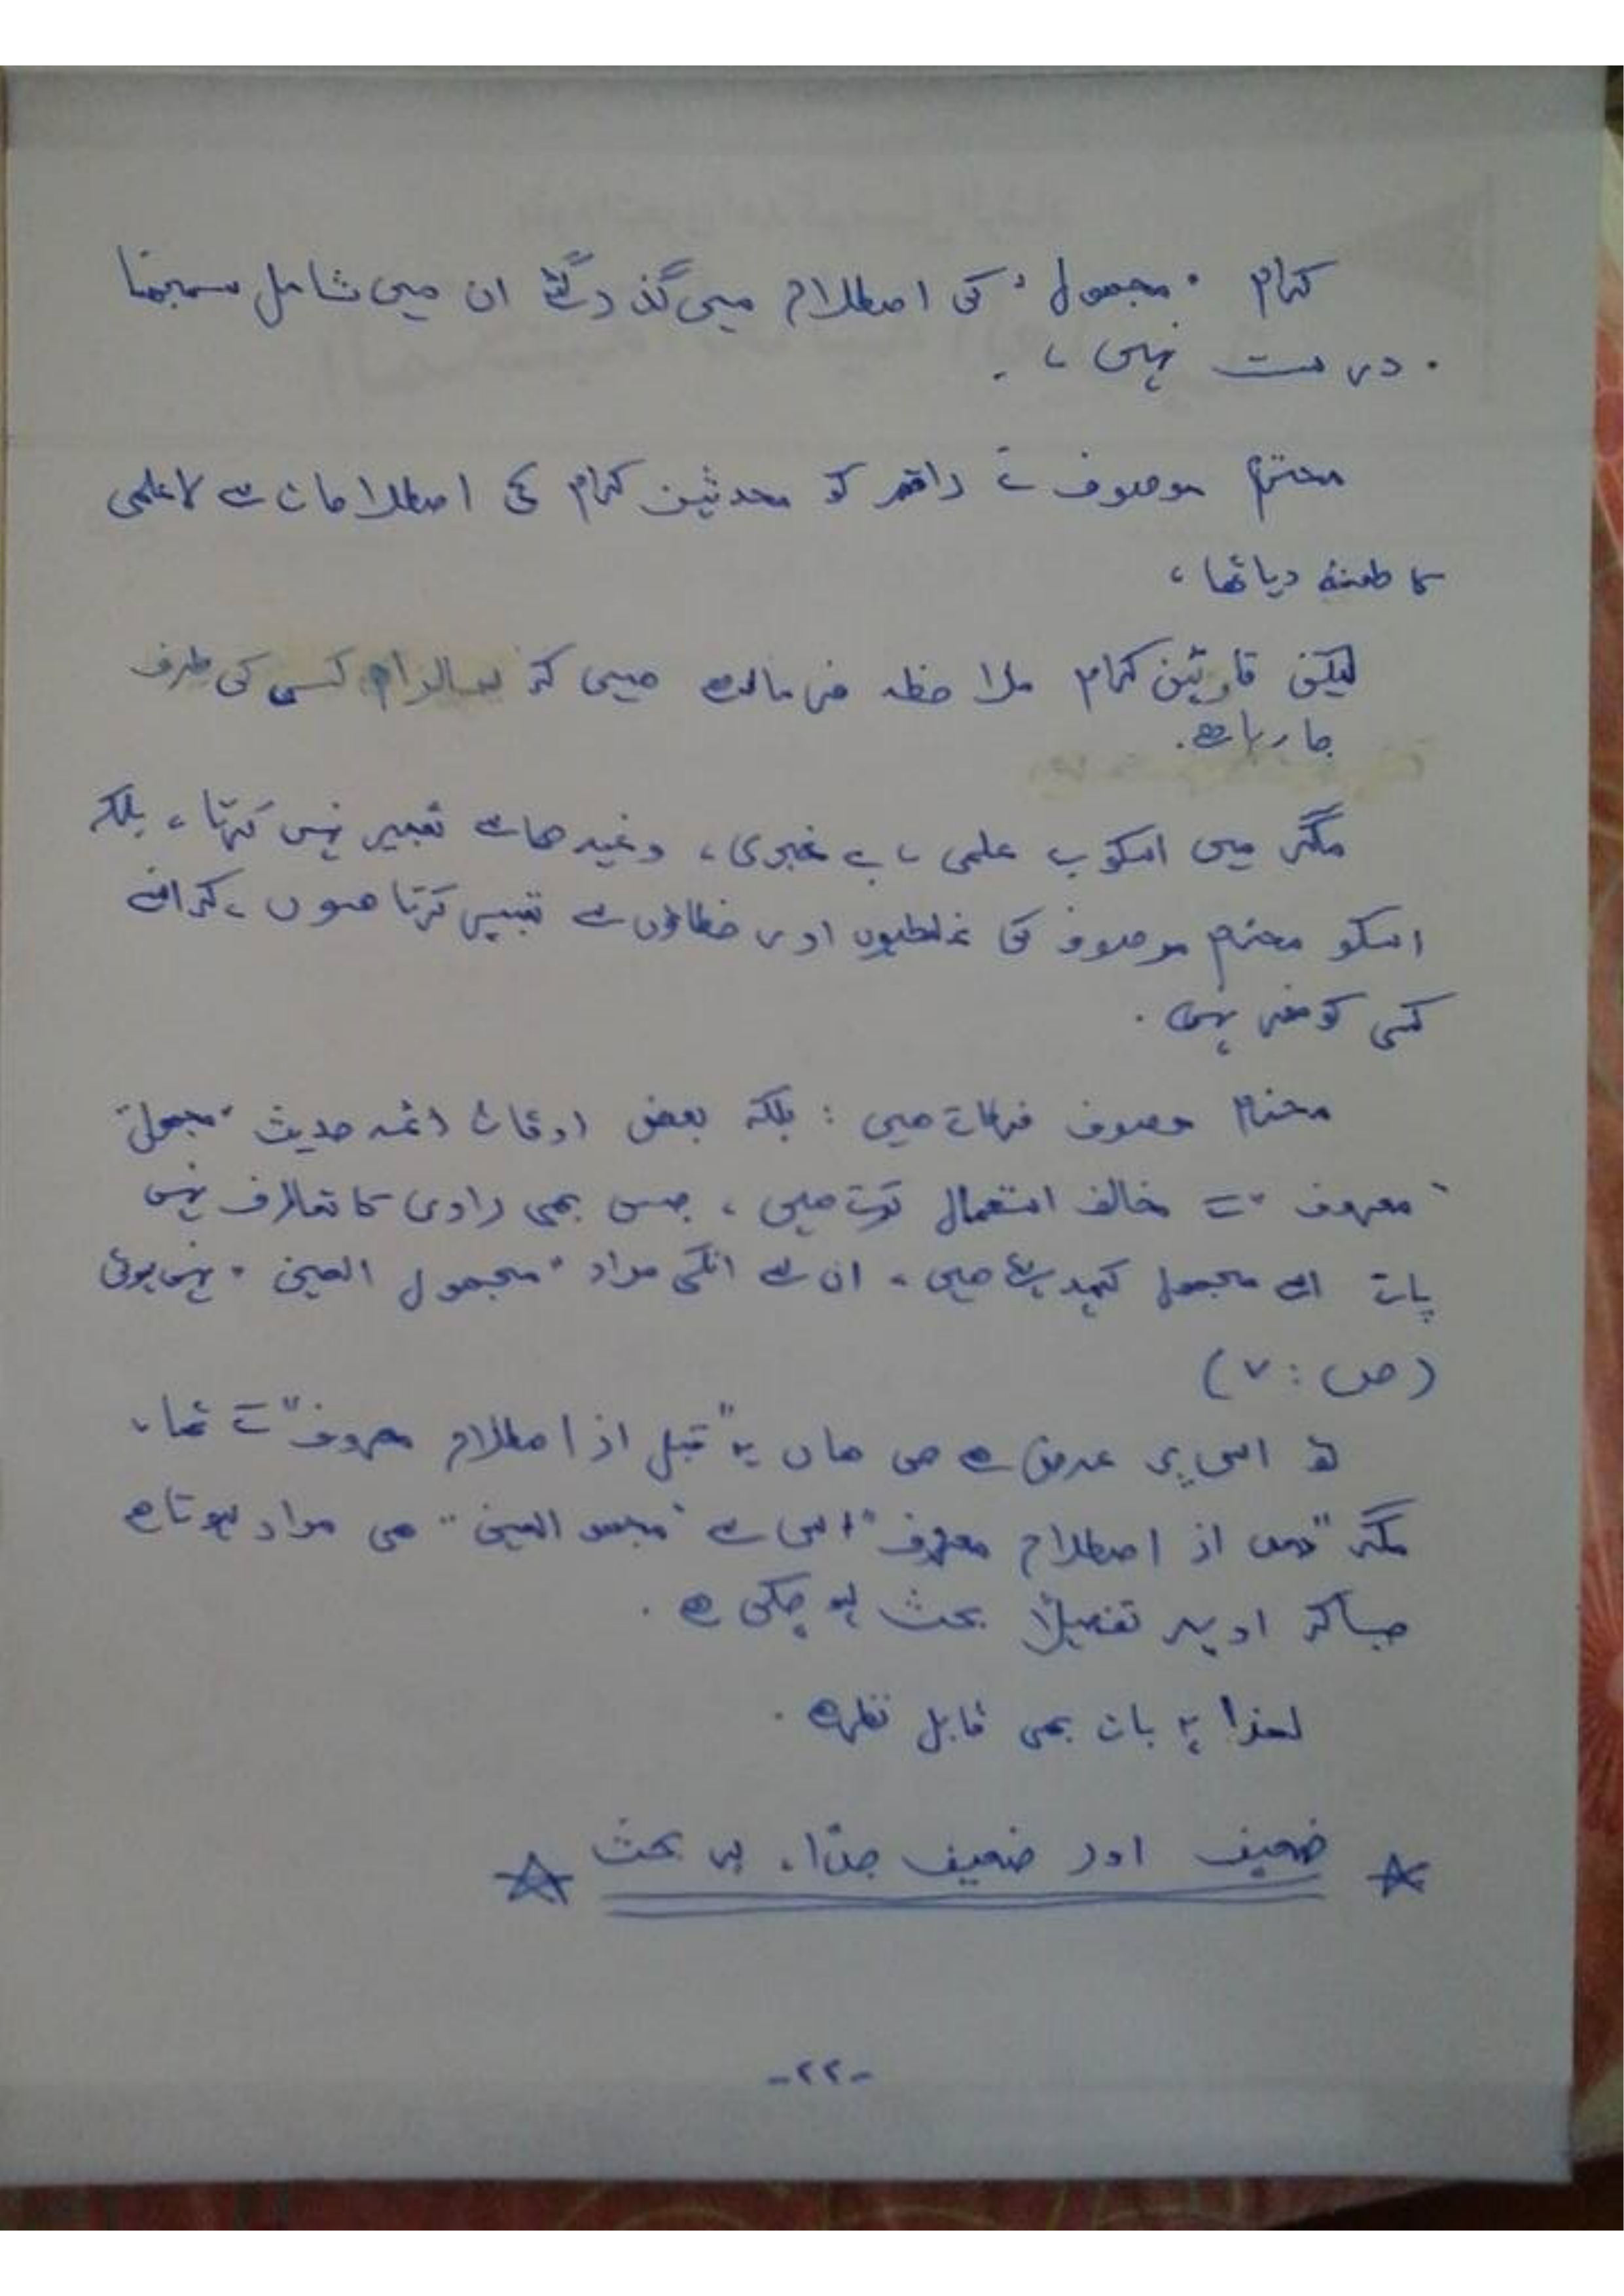 کرام "مجھول" کی اصطلاح میں گذر گئے ان میں شامل سمجھنا
درست نہیں،
محترم موصوف نے راقم کو محدثین کرام کی اصطلاحات سے لاعلمی
کا طعنہ دیا تھا،
لیکن قارئین کرام ملاحظہ فرمالے ھیں کہ الزام کسی کی طرف
جا رہا ھے.
مگر میں اسکو بے علمی، بے خبری، وغیرھا سے تعبیر نہیں کرتا، بلکہ
اسکو محترم موصوف کی غلطیوں اور خطاؤں سے تعبیر کرتا ھوں،
کسی کو مفر نہیں.
محترم موصوف فرماتے ھیں: بلکہ بعض اوقات ائمہ حدیث "مجھول"
"معروف" کے مخالف استعمال کرتے ھیں، جس بھی راوی کا تعارف نہیں
پاتے اسے مجھول کہہ دیتے ھیں، ان سے انکی مراد "مجھول العین" نہیں ہوتی
(ص: ۷)
اس پر عرض ھے ھاں یہ "قبل از اصطلاح معروف" تھا،
مگر "بعد از اصطلاح معروف" اس سے "مجھول العین" ھی مراد ہوتا ھے
جیساکہ اوپر تفصیلاً بحث ہو چکی ھے.
لھذا یہ بات بھی قابل نظر ھے.
☆ ضعیف اور ضعیف جدًا، پر بحث ☆
-۲۲-